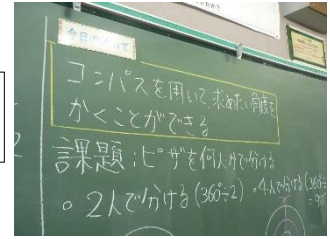 今日のめあて
コンパスを用いて、求めたい角度を
かくことができる
課題：ピザを何人かで分ける
○2人で分ける(360÷2)
・4人で分ける(360÷